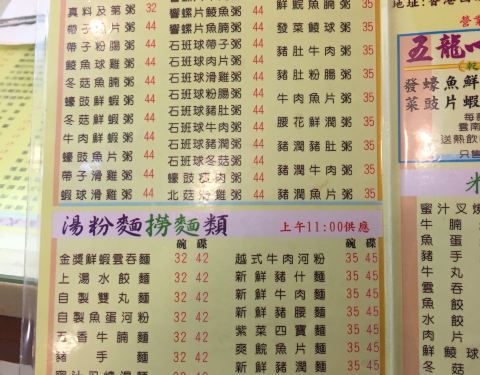 真料及第粥 32
帶子片粥 44
帶子粉腸粥 44
鯪魚球粥 44
冬菇魚腩粥 44
蠔豉鮮蝦粥 44
冬菇鮮蝦粥 44
牛肉鮮蝦粥 44
蠔豉魚片粥 44
帶子滑雞粥 44
蝦球滑雞粥 44
響螺片鯪魚粥 44
響螺片魚腩粥 44
石班球帶子粥 44
石班球牛肉粥 44
石班球滑雞粥 44
石班球粉腸粥 44
石班球豬肚粥 44
石班球牛肉粥 44
石班球鮮潤粥 44
石班球冬菇粥 44
蠔豉瘦肉粥 44
北菇滑雞粥 44
鮮鯇魚腩粥 35
發菜鯪球粥 35
豬肚牛肉粥 35
豬肚粉腸粥 35
牛肉魚片粥 35
腰花鮮潤粥 35
豬潤豬肚粥 35
豬潤牛肉粥 35
豬潤魚片粥 35
湯粉麵撈麵類
上午11:00供應
碗 碟
金獎鮮蝦雲吞麵 32 42
上湯水餃麵 32 42
自製雙丸麵 32 42
自製魚蛋河粉 32 42
五香牛腩麵 32 42
豬手麵 32 42
碗 碟
越式牛肉河粉 35 45
新鮮豬什麵 35 45
新鮮牛肉麵 35 45
新鮮豬腰麵 35 45
紫菜四寶麵 35 45
爽鯇魚片麵 35 45
新鮮豬潤麵 35 45
地址:香港
營業
五龍
發蠔魚鮮
菜豉片蝦
每
雲南
送熱飲
只售
米
蜜汁叉燒
牛腩
魚蛋
豬手
牛丸
雲吞
魚餃
水餃
肉片
鮮鯪球
冬菇